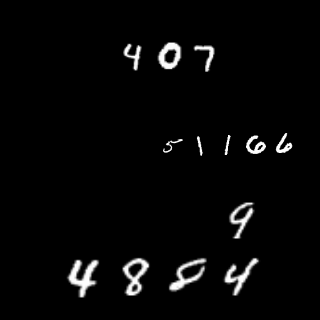 407
51166
9
4884